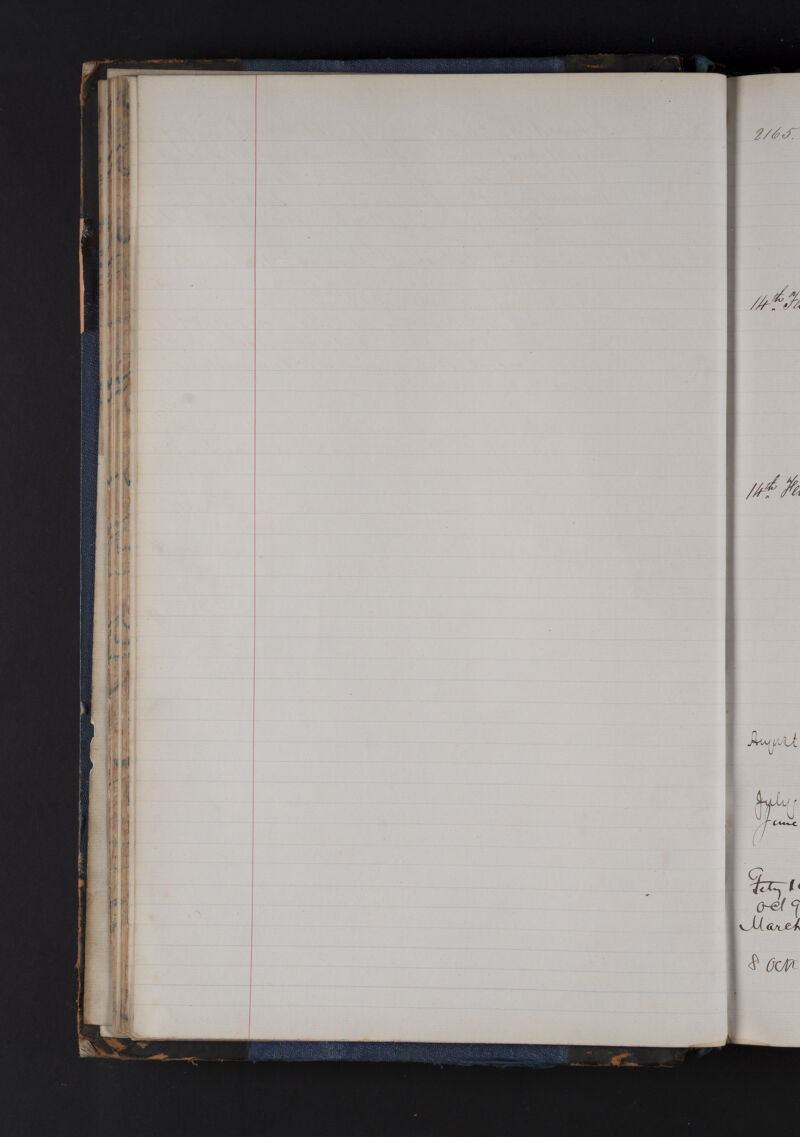 2165.
14th
14th
August
July
June
Feby
Oct 9
March
8 Oct